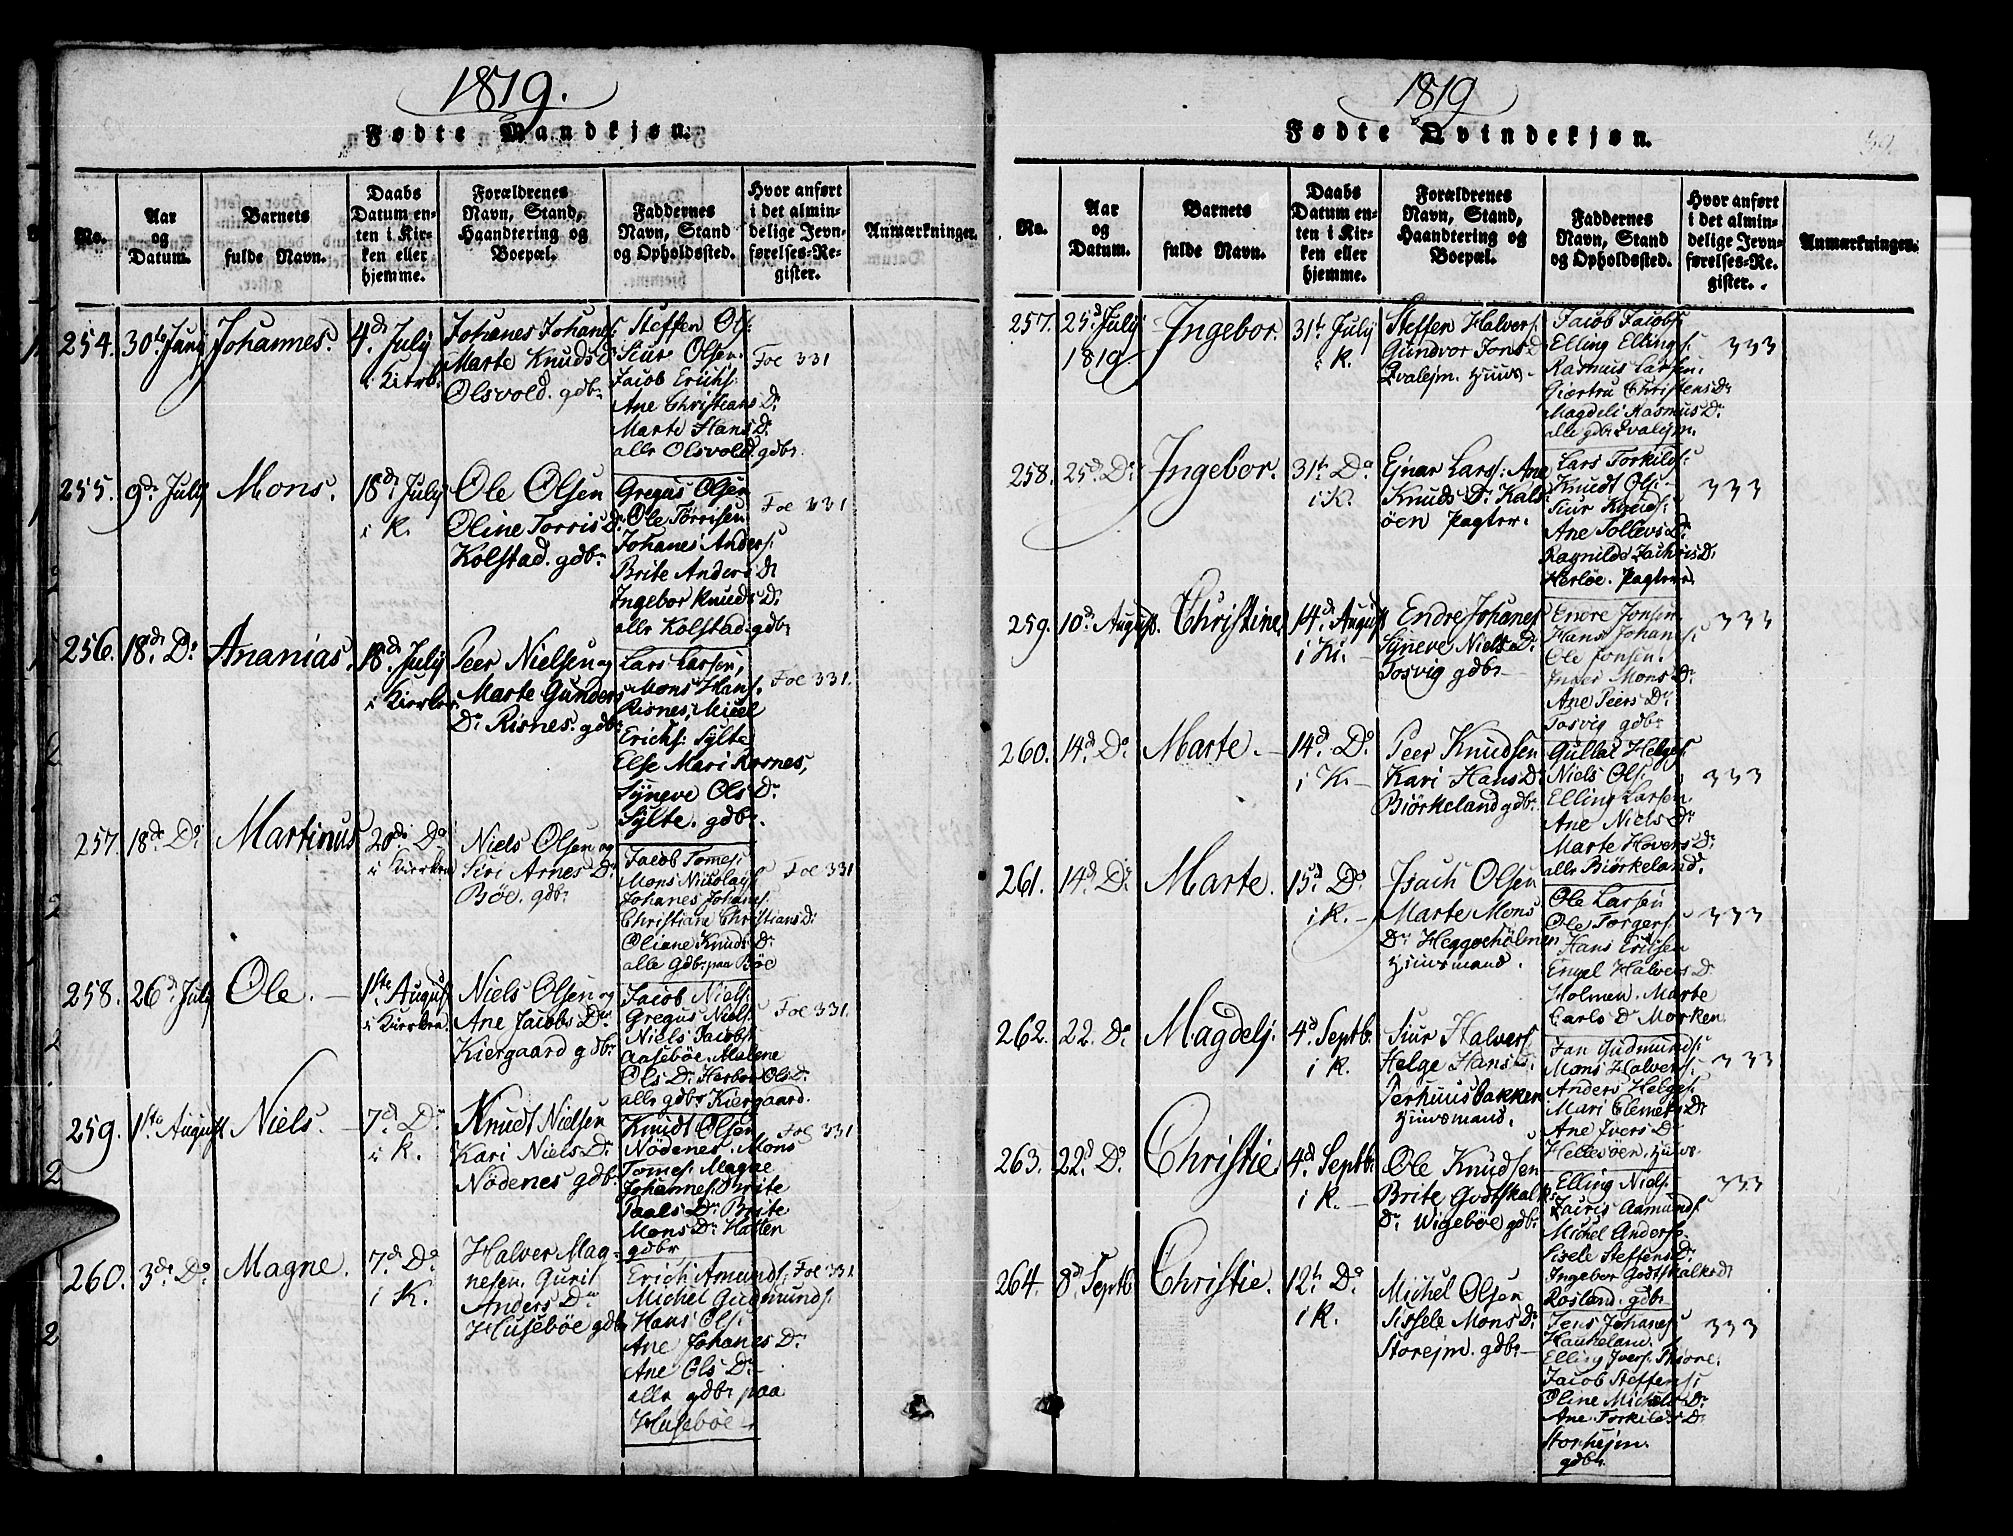 1819.
Fødte Mandkjøn.
No.
Aar
og
Datum.
Barnets
fulde Navn.
Daabs
Datum en-
ten i Kir-
ken eller
hjemme.
Forældrenes
Navn, Stand,
Haandtering og
Boepæl.
Faddernes
Navn, Stand
og Opholdssted.
Hvor anført
i det almin-
delige Jevn-
førelses-Re-
gister.
Anmærkninger.
254.
Johannes.
4de July
Johanes Johans:
Marte Knuds D.
Olsvold. gdbr
Steffen Ols:
Siur Olsen.
Jacob Erichs:
Ane Christians Dr
Marte Hans D.
alle Olsvold. gdbr.
Foe 331
255.
9de July
Mons.
18de July
i K.
Ole Olsen
Oline Torris Dr
Kolstad. gdbr
Gregus Olsen
Ole Torrisen
Johanes Anders:
Brite Anders Dr
Ingebor Knuds Dr
alle Kolstad. gdbr
Foe 331
256.
18de Do
Ananias.
18de July
Peer Nielsen og
Marte Gunders
Dr Risnes. gdbr
Lars Larsen,
Mons Hans.
Risnes, Micel
Erichs: Sylte
Else Mari Risnes,
Syneve Ols Dr
Sylte. gdbr.
Foe 331.
257.
18de Do
Martinus
20de Do
Niels Olsen og
Siri Arnes Dr
Böe. gdbr
Jacob Tomes:
Mons Nicolays
Johanes Johans:
Christiane Christians Dr
Oliane Knuds Dr
alle Gdbr. paa Böe
Foe 331
258.
26d July
Ole.
1ste August
Niels Olsen og
Ane Jacobs Dr
Kiergaard gdbr
Jacob Niels:
Gregus Niels:
Niels Jacobs:
Aasebøe. Malene
Ols Dr Herbor Ols Dr
alle gdbr Kiergaard.
Foe 331.
259.
1ste August
Niels.
7d Do
i K.
Knudt Nielsen
Kari Niels Dr
Nödenes gdbr
Knudt Olsen
Nödenes. Mons
Tomes. Magne
Johannes: Brite
Paals Dr Brite
Mons Dr Hatlen
gdbr
Foe 331
260.
3de Do
Magne.
7de Do
i K.
Halver Mag-
nesen. Guril
Anders Dr
Husebøe gdbr
Erich Amunds:
Michel Gudmunds:
Hans Ols:
Ane Johanes Dr
Ane Ols Dr
alle gdbr paa
Husebøe
Foe 331
1819
Fødte Qvindekjøn.
No.
Aar
og
Datum.
Barnets
fulde Navn.
Daabs
Datum en-
ten i Kir-
ken eller
hjemme.
Forældrenes
Navn, Stand,
Haandtering og
Boepæl.
Faddernes
Navn, Stand
og Opholdssted.
Hvor anført
i det almin-
delige Jevn-
førelses-Re-
gister.
Anmærkninger.
257.
25d July
1819
Ingebor.
31te July
i K.
Steffen Halvers:
Gundvor Jons D
Jacob Jacobs:
Elling Ellings:
Rasmus Larsen.
Giertru Christens Dr
Magdeli Rasmus Dr
333
258.
25d Do
Ingebor.
31te Do
i K.
Ejnar Lars: Ane
Knuds Dr Kals
öen Pagter.
Lars Torkilds:
Knudt Ols:
Siur Knuds:
Ane Tollevs Dr
Ragnilde Zachris Dr
Herlöe. Pagter
333
259.
10d August.
Christine
14d August
i Ki.
Endre Johanes
Syneve Niels Dr
Tosvig gdbr
Endre Jonsen
Hans Johan:
Ole Jonsen.
Inger Mons Dr
Ane Peers Dr
Tosvig gdbr
333
260.
14d Do
Marte.
14d Do
i K.
Peer Knudsen
Kari Hans Dr
Biörkeland gdbr
Gullak Helges:
Niels Ols:
Elling Larsen
Ane Niels Dr
Marte Hovers Dr
alle Biörkeland.
333
261.
14d Do
Marte.
15d Do
i K.
Isach Olsen
Marte Mons
Dr Heggoeholmen
Huusmand.
Ole Larsen
Ole Torgers:
Hans Erilsen
Engel Halvers D
Holmen. Marte
Carls Dr Morken
333
262.
22. Do
Magdelj.
4d Septbr
i K.
Siur Halvers:
Helge Hans Dr
Perhuusbakken
Huusmand.
Jan Gudmunds:
Mons Halvers:
Anders Helges:
Mari Clemets Dr
Ane Ivers Dr
333
263.
22d Do
Christie
4d Septbr
i K.
Ole Knudsen
Brite Godtskalks
Dr Wigebøe gdbr
Elling Niels:
Zacris Aamunds
Michel Anders:
Sisele Steffens Dr
Ingebor Godtskalks Dr
Rosland. gdbr
333
264.
8d Septbr
Christie.
12te Do
i K.
Michel Olsen
Sissele Mons Dr
Storejm. gdbr
Jens Johanes:
Haukeland.
Jacob Steffens:
Oline Michels Dr
Ane Torkilds Dr
Storhejm.
gdbr.
333